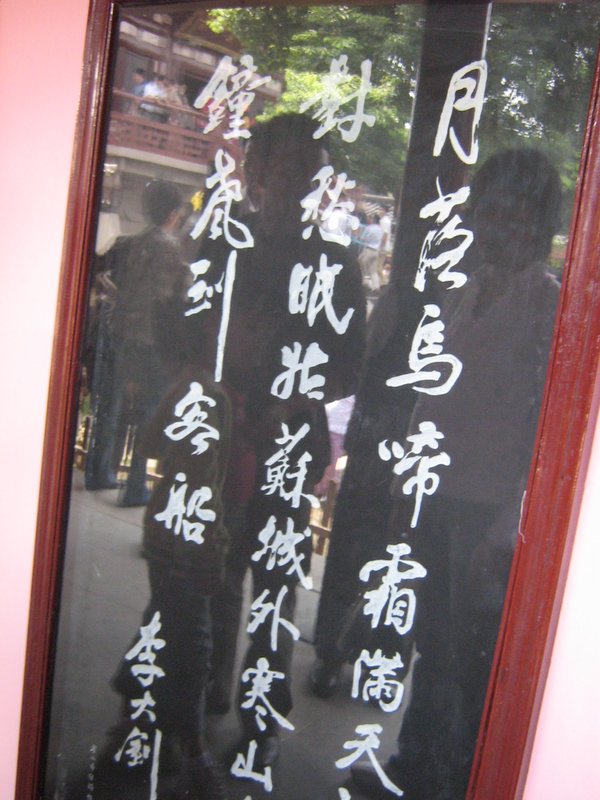 月落烏啼霜滿天
對愁眠姑蘇城外寒山
鐘聲到客船
李大釗